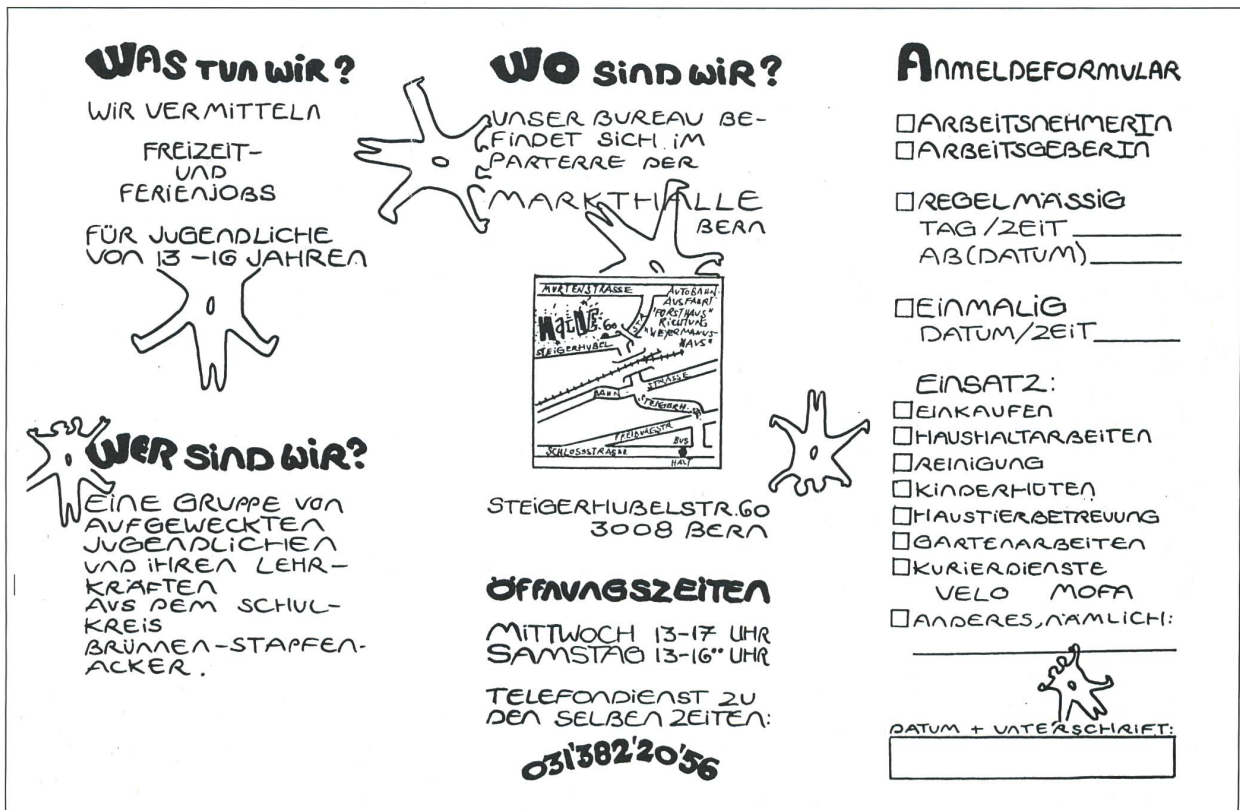 WAS TUN WIR?
WIR VERMITTELN
FREIZEIT-
UND
FERIENJOBS
FÜR JUGENDLICHE
VON 13-16 JAHREN
WER SIND WIR?
EINE GRUPPE VON
AUFGEWECKTEN
JUGENDLICHEN
UND IHREN LEHR-
KRÄFTEN
AUS DEM SCHUL-
KREIS
BRÜNNEN-STAPFEN-
ACKER.
WO SIND WIR?
UNSER BUREAU BE-
FINDET SICH IM
PARTERRE DER
MARKTHALLE
BERN
MURTENSTRASSE
AUTOBAHN-
AUSFAHRT
"FORSTHAUS"
RICHTUNG
"WEYERMANNS-
HAUS"
STR.
60
STEIGERHUBEL
BAHN
STRASSE
STEIGERH.
FREIBURGSTR
BUS
SCHLOSSSTRASSE
HALT
STEIGERHUBELSTR.60
3008 BERN
ÖFFNUNGSZEITEN
MITTWOCH 13-17 UHR
SAMSTAG 13-16°° UHR
TELEFONDIENST ZU
DEN SELBEN ZEITEN:
031'382'20'56
ANMELDEFORMULAR
ARBEITSNEHMERIN
ARBEITSGEBERIN
REGELMÄSSIG
TAG/ZEIT
AB(DATUM)
EINMALIG
DATUM/ZEIT
EINSATZ:
EINKAUFEN
HAUSHALTARBEITEN
REINIGUNG
KINDERHÜTEN
HAUSTIERBETREUUNG
GARTENARBEITEN
KURIERDIENSTE
VELO MOFA
ANDERES, NÄMLICH:
DATUM + UNTERSCHRIFT: